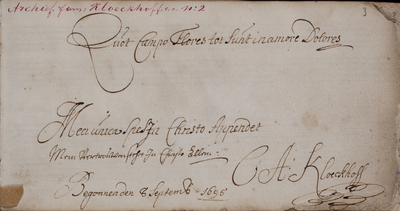 Archief fam. Kloeckhoff no: 2
3
Quot Campo Flores tot Sunt in amore Dolores
Mea unica Spes in Christo Appendet
Mein in Christo
C A Kloeckhoff
Begonnen den 8 Septemb 1696